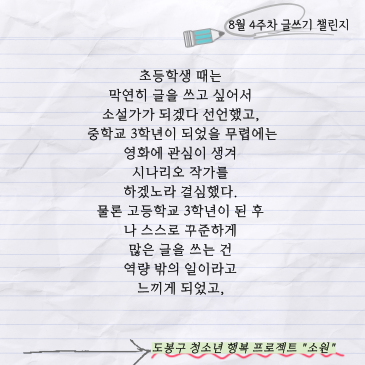 8월 4주차 글쓰기 챌린지
초등학생 때는
막연히 글을 쓰고 싶어서
소설가가 되겠다 선언했고,
중학교 3학년이 되었을 무렵에는
영화에 관심이 생겨
시나리오 작가를
하겠노라 결심했다.
물론 고등학교 3학년이 된 후
나 스스로 꾸준하게
많은 글을 쓰는 건
역량 밖의 일이라고
느끼게 되었고,
도봉구 청소년 행복 프로젝트 "소원"